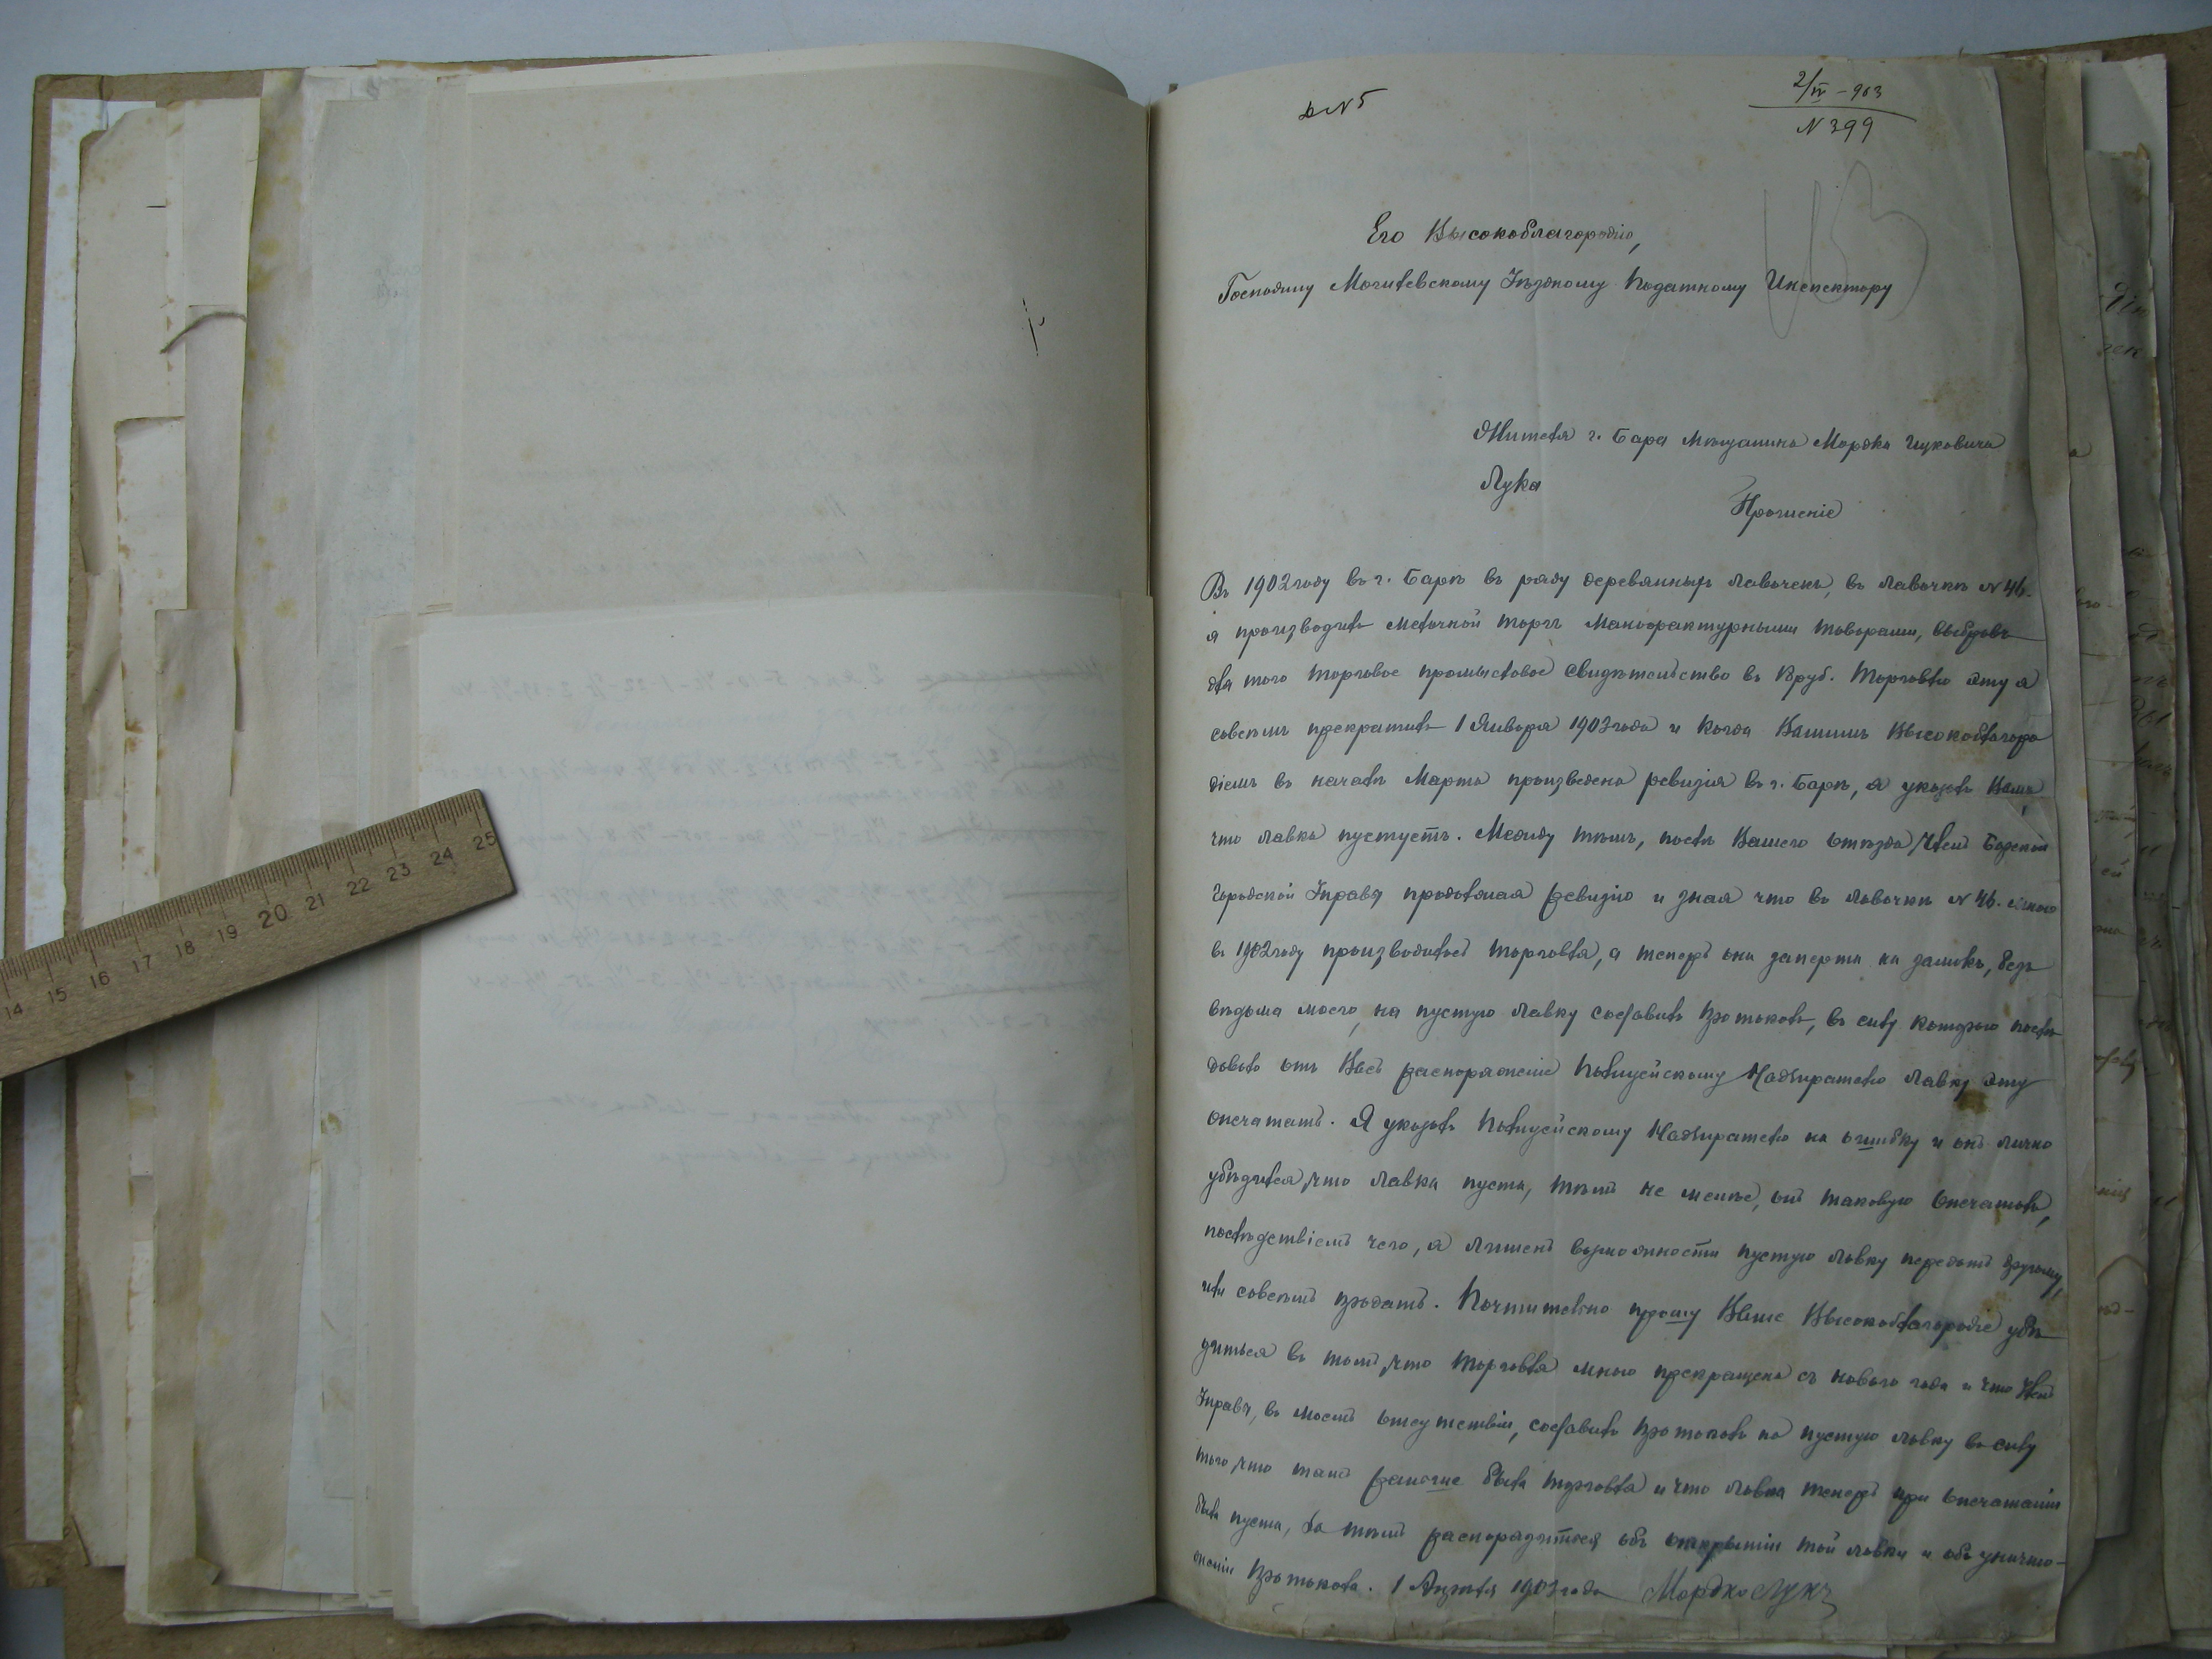 14 15 16 17 18 19 20 21 22 23 24 25
№ 5
2/IV - 903
N 399
Его Высокоблагородію,
Господину Могилевскому Уѣздному Податному Инспектору
Жителя г. Бара мѣщанина Мордка Ицковича
Лука
Прошеніе
Въ 1902 году въ г. Барѣ въ ряду деревянныхъ лавочекъ, въ лавочкѣ № 46.
я производилъ мелочной торгъ мануфрактурными товарами, выбравъ
для того торговое промысловое свидѣтельство въ руб. Торговлю эту я
совсѣмъ прекратилъ 1 Января 1903 года и когда Вашимъ Высокоблагоро
діемъ въ началѣ Марта произведена ревизія въ г. Барѣ, я указалъ Вамъ,
что лавка пустуетъ. Между тѣмъ, послѣ Вашего отъѣзда Членъ Барской
Городской Управы продолжая ревизію и зная что въ лавочкѣ № 46. мною
въ 1902 году производилась торговля, а теперь она заперта на замокъ, безъ
вѣдома моего, на пустую лавку составилъ протоколъ, въ силу которого послѣ
довало отъ Васъ распоряженіе Полицейскому Надзирателю лавку эту
опечатать. Я указалъ Полицейскому Надзирателю на ошибку и онъ лично
убѣдился, что лавка пуста, тѣмъ не менѣе, онъ таковую опечаталъ,
послѣдствіемъ чего, я лишенъ возможности пустую лавку передать другому,
или совсѣмъ продать. Почтительно прошу Ваше Высокоблагородіе убѣ
диться въ томъ, что торговля мною прекращена съ нового года и что Членъ
Управы, въ моемъ отсутствіи, составилъ протоколъ на пустую лавку въ силу
того, что тамъ раньше была торговля и что лавка теперь при опечатаніи
была пуста, за тѣмъ распорядиться объ открытіи той лавки и объ уничто-
женіи протокола. 1 Апрѣля 1903 года Мордко Лукъ